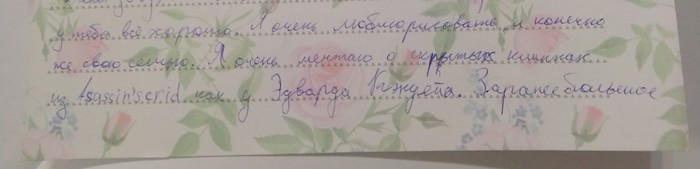 у тебя всё хорошо. Я очень люблю рисовать и конечно
же свою семью. Я очень мечтаю о скрытых клинках
из Assassin's crid как у Эдварда Кэнуэйа. Заранее большое